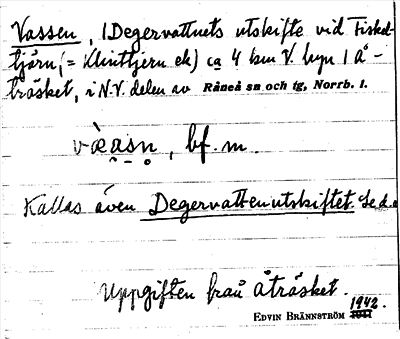 Vassen, i Degervattnets utskifte vid Fiskel-
tjärn (= Klinttjern ek) ca 4 km V. byn i Å-
träsket, i N.V. delen av Råneå sn och tg, Norrb. l.
væ̀a̠sn̥, bf. m.
Kallas även Degervattenutskiftet. Se d.o
Uppgiften från Åträsket.
1942.
EDVIN BRÄNNSTRÖM